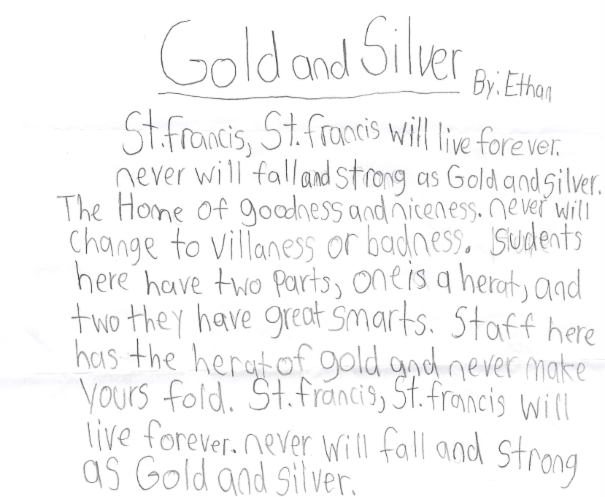 Gold and Silver
By: Ethan
St.francis, St.francis will live forever.
never will fall and strong as Gold and Silver.
The Home of goodness and niceness. never will
change to villaness or badness. Students
here have two parts, one is a herat, and
two they have great smarts. Staff here
has the herat of gold and never make
yours fold. St.francis, St.francis will
live forever. never will fall and strong
as Gold and Silver.